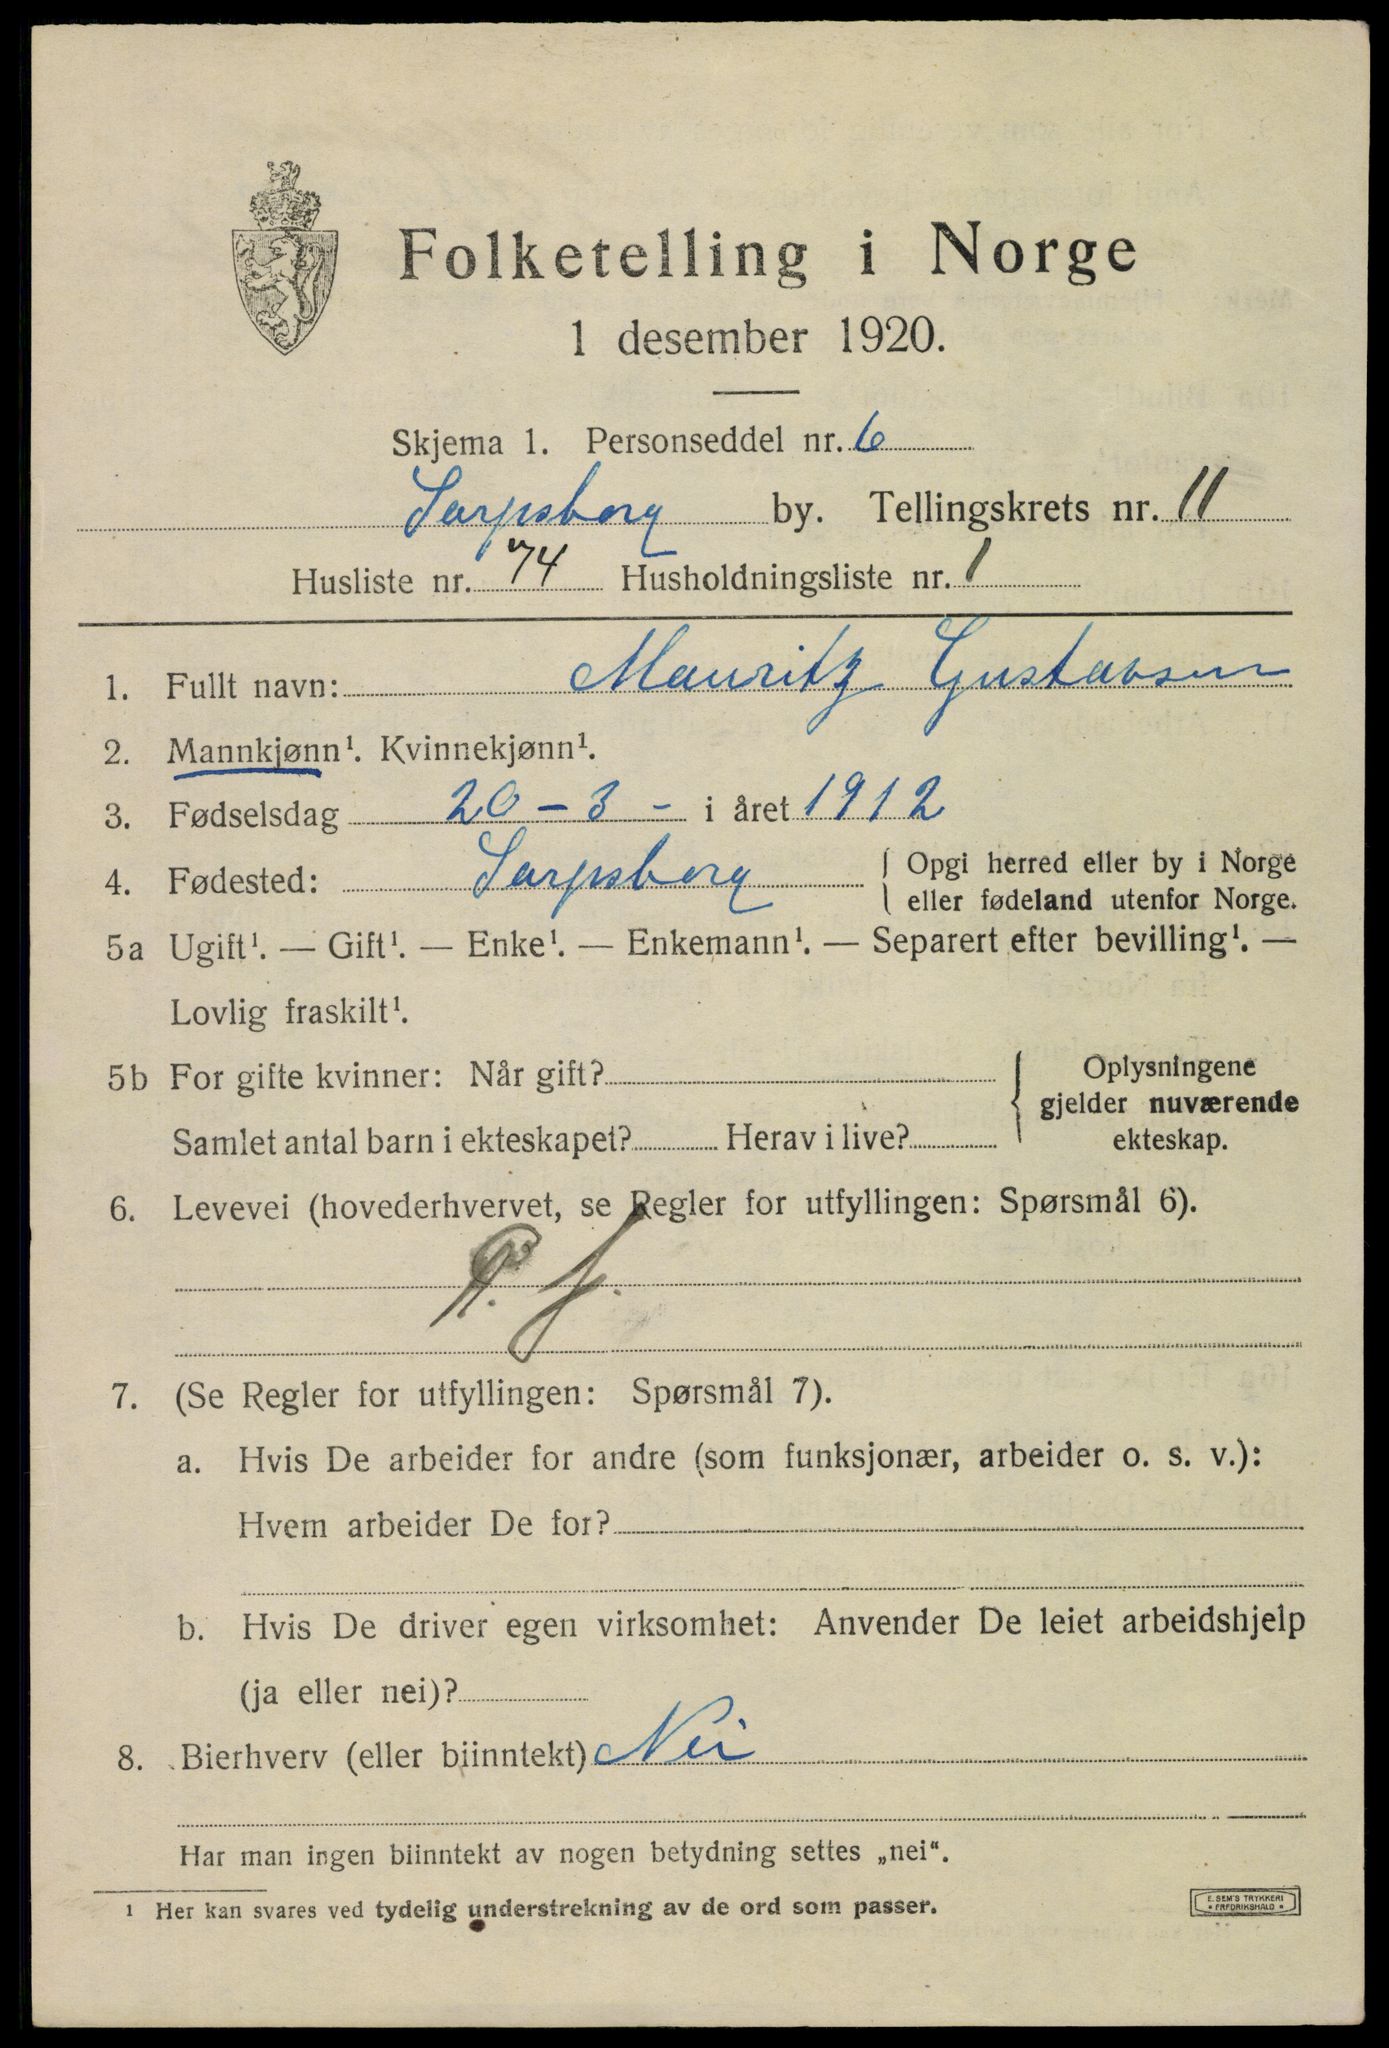 Folketelling i Norge
1 desember 1920.
Skjema 1. Personseddel nr. 6
Sarpsborg by. Tellingskrets nr. 11
Husliste nr. 74 Husholdningsliste nr. 1
1. Fullt navn: Mauritz Gustavsen
2. Mannkjønn¹. Kvinnekjønn¹.
3. Fødselsdag 20 - 3 - i året 1912
4. Fødested: Sarpsborg { Opgi herred eller by i Norge
eller fødeland utenfor Norge.
5a Ugift¹. — Gift¹. — Enke¹. — Enkemann¹. — Separert efter bevilling¹. —
Lovlig fraskilt¹.
5b For gifte kvinner: Når gift?
Samlet antal barn i ekteskapet? Herav i live?
{ Oplysningene
gjelder nuværende
ekteskap.
6. Levevei (hovederhvervet, se Regler for utfyllingen: Spørsmål 6).
7. (Se Regler for utfyllingen: Spørsmål 7).
a. Hvis De arbeider for andre (som funksjonær, arbeider o. s. v.):
Hvem arbeider De for?
b. Hvis De driver egen virksomhet: Anvender De leiet arbeidshjelp
(ja eller nei)?
8. Bierhverv (eller biinntekt) Nei
Har man ingen biinntekt av nogen betydning settes „nei“.
¹ Her kan svares ved tydelig understrekning av de ord som passer.
E. SEM'S TRYKKERI
* FREDRIKSHALD *